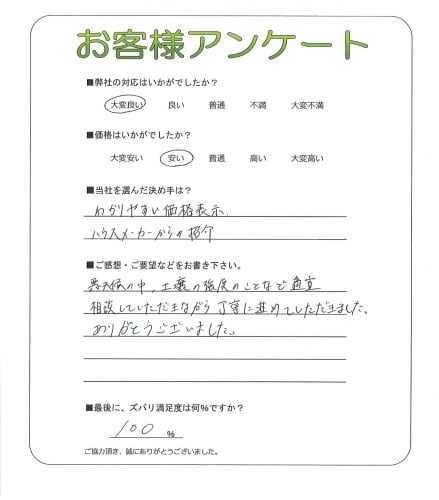 お客様アンケート
■弊社の対応はいかがでしたか?
大変良い 良い 普通 不満 大変不満
■価格はいかがでしたか?
大変安い 安い 普通 高い 大変高い
■当社を選んだ決め手は?
わかりやすい価格表示、
ハウスメーカーからの紹介
■ご感想・ご要望などをお書き下さい。
悪天候の中、土壌の強度のことなど適宜
相談していただきながら丁寧に進めていただきました。
ありがとうございました。
■最後に、ズバリ満足度は何%ですか?
100 %
ご協力頂き、誠にありがとうございました。